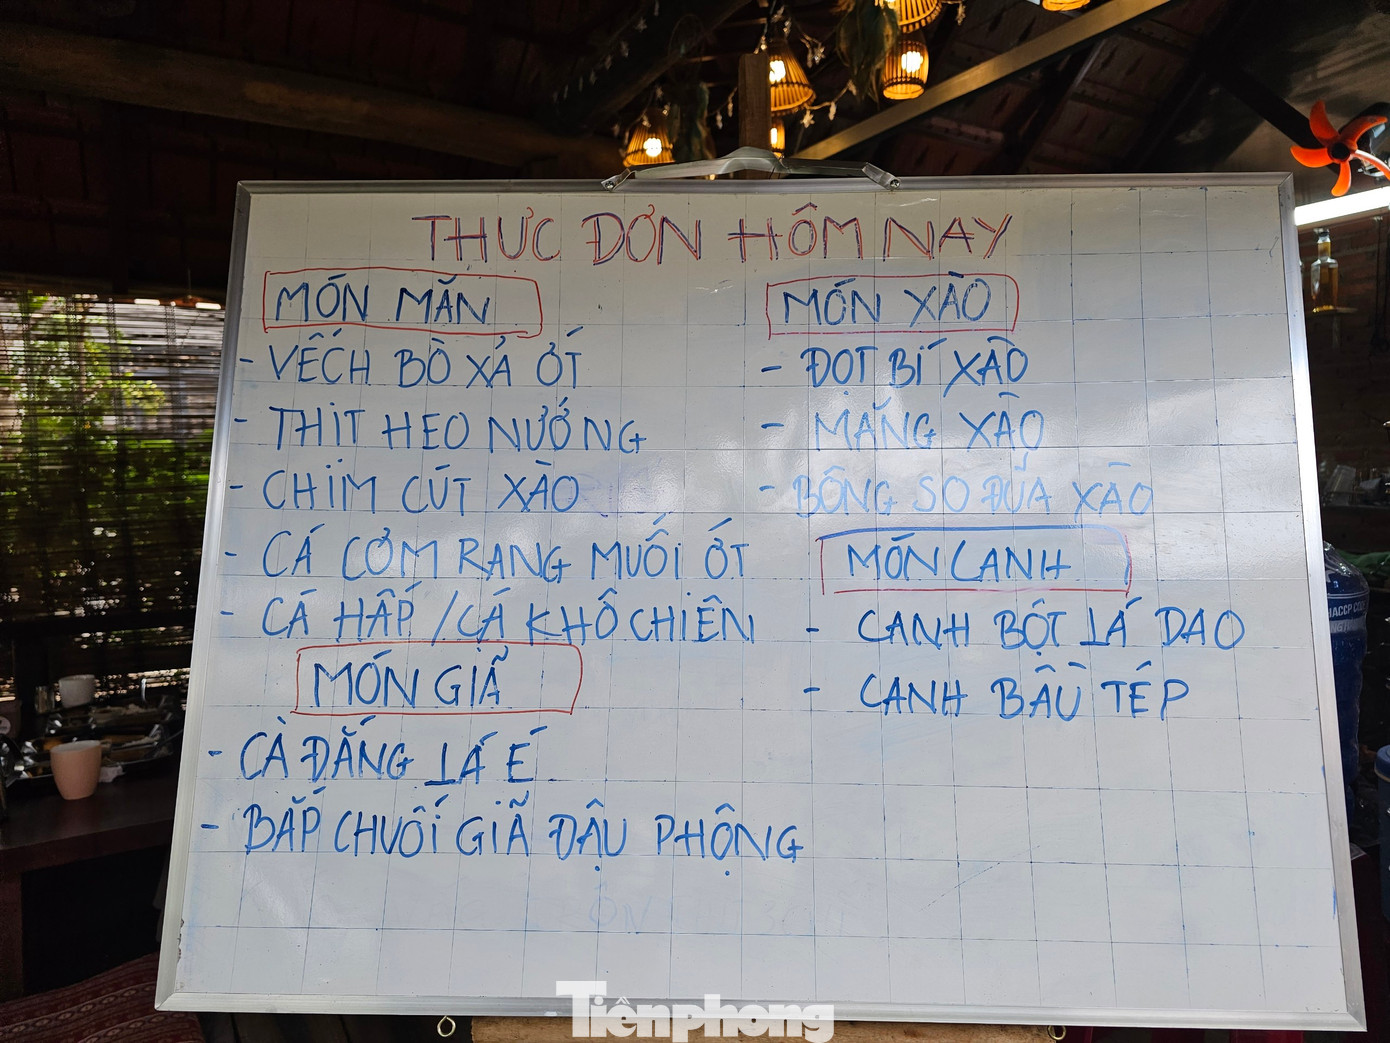 THỰC ĐƠN HÔM NAY
MÓN MĂN
- VẾCH BÒ XẢ ỚT
- THIT HEO NƯỚNG
- CHIM CÚT XÀO
- CÁ CƠM RANG MUỐI ỚT
- CÁ HẤP / CÁ KHÔ CHIÊN
MÓN GIÃ
- CÀ ĐẮNG LÁ É
- BẮP CHUỐI GIÃ ĐẬU PHỘNG
MÓN XÀO
- ĐỌT BÍ XÀO
- MĂNG XÀO
- BÔNG SO ĐŨA XÀO
MÓN CANH
- CANH BỘT LÁ DAO
- CANH BẦU TÉP
Tiênphong